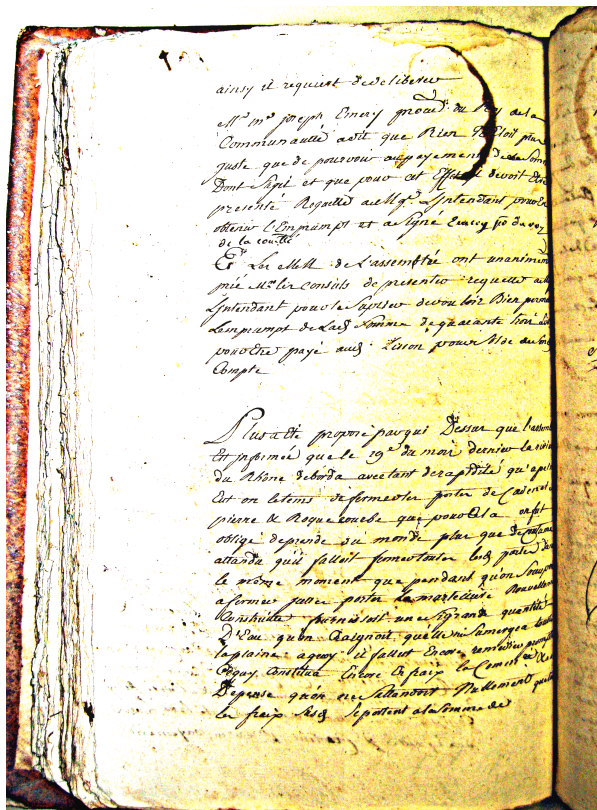 ainsy il requiert de deliberer
Mr. me. joseph Emery procur. du Roy de la
Communauté a dit que Rien n'Etoit plus
juste que de pourvoir au payement de la Som
Dont Sagit et que pour cet Effet devoit Etre
presenté Requette a Mgr. L'Intendant pour En
obtenir L'Emprumpt et a signé Emery po. du roy
de la com.té
Et Les MM. de L'assemblée ont unanimem
prié Mrs. les consuls de presenter requette a M
L'Intendant pour le Suplier de vouloir Bien perme
Lemprumpt de Lad. Somme de quarante trois
pour Etre payé aud. Tisson pour solde de Son
Compte
Plus a Eté proposé par qui Dessus que l'assem
Est informée que le 19e du mois dernier la riviere
du Rhône deborda avec tant de rapidité qu'a peine
Eut on le tems de fermer les portes de Cadenet
pierre & Roquecourbe que pour Cela on fut
obligé de prendre du monde plus que de Coutume
attandu qu'il falloit fermer toutes les portes dans
le même moment que pendant qu'on
a fermer  portes La martelliere Nouvellem
Construitte fournissoit une Si grande quantité
D'Eau qu'on Craignoit quelle ne Sumergea toute
la plaine aquoy il fallut Encore remedier prompt
Cequy Constitua Encore En fraix la Comm.té
Depense qu'on ne Sattendoit Nullement que
les fraix Susd. Se portent a la Somme de